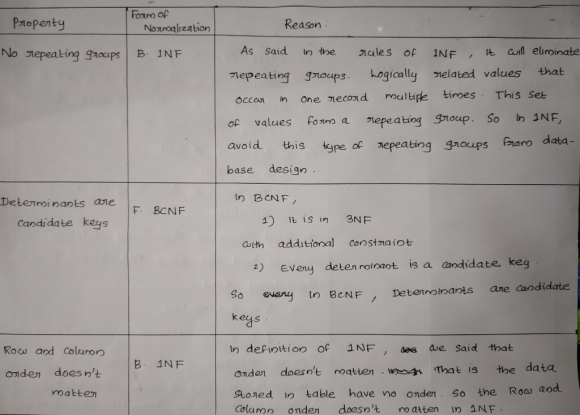 Property
Form of
Normalization
Reason
No repeating groups
B. 1NF
As said in the rules of 1NF, It will eliminate
repeating groups. Logically related values that
occur in one record multiple times. This set
of values form a repeating group. So in 1NF,
avoid this type of repeating groups from data-
base design.
Determinants are
candidate keys
F. BCNF
In BCNF,
1) It is in 3NF
with additional constraint
2) Every determinant is a candidate key.
So in BCNF, Determinants are candidate
keys.
Row and column
order doesn't
matter
B. 1NF
In definition of 1NF, we said that
order doesn't matter. That is the data
stored in table have no order. So the Row and
Column order doesn't matter in 1NF.